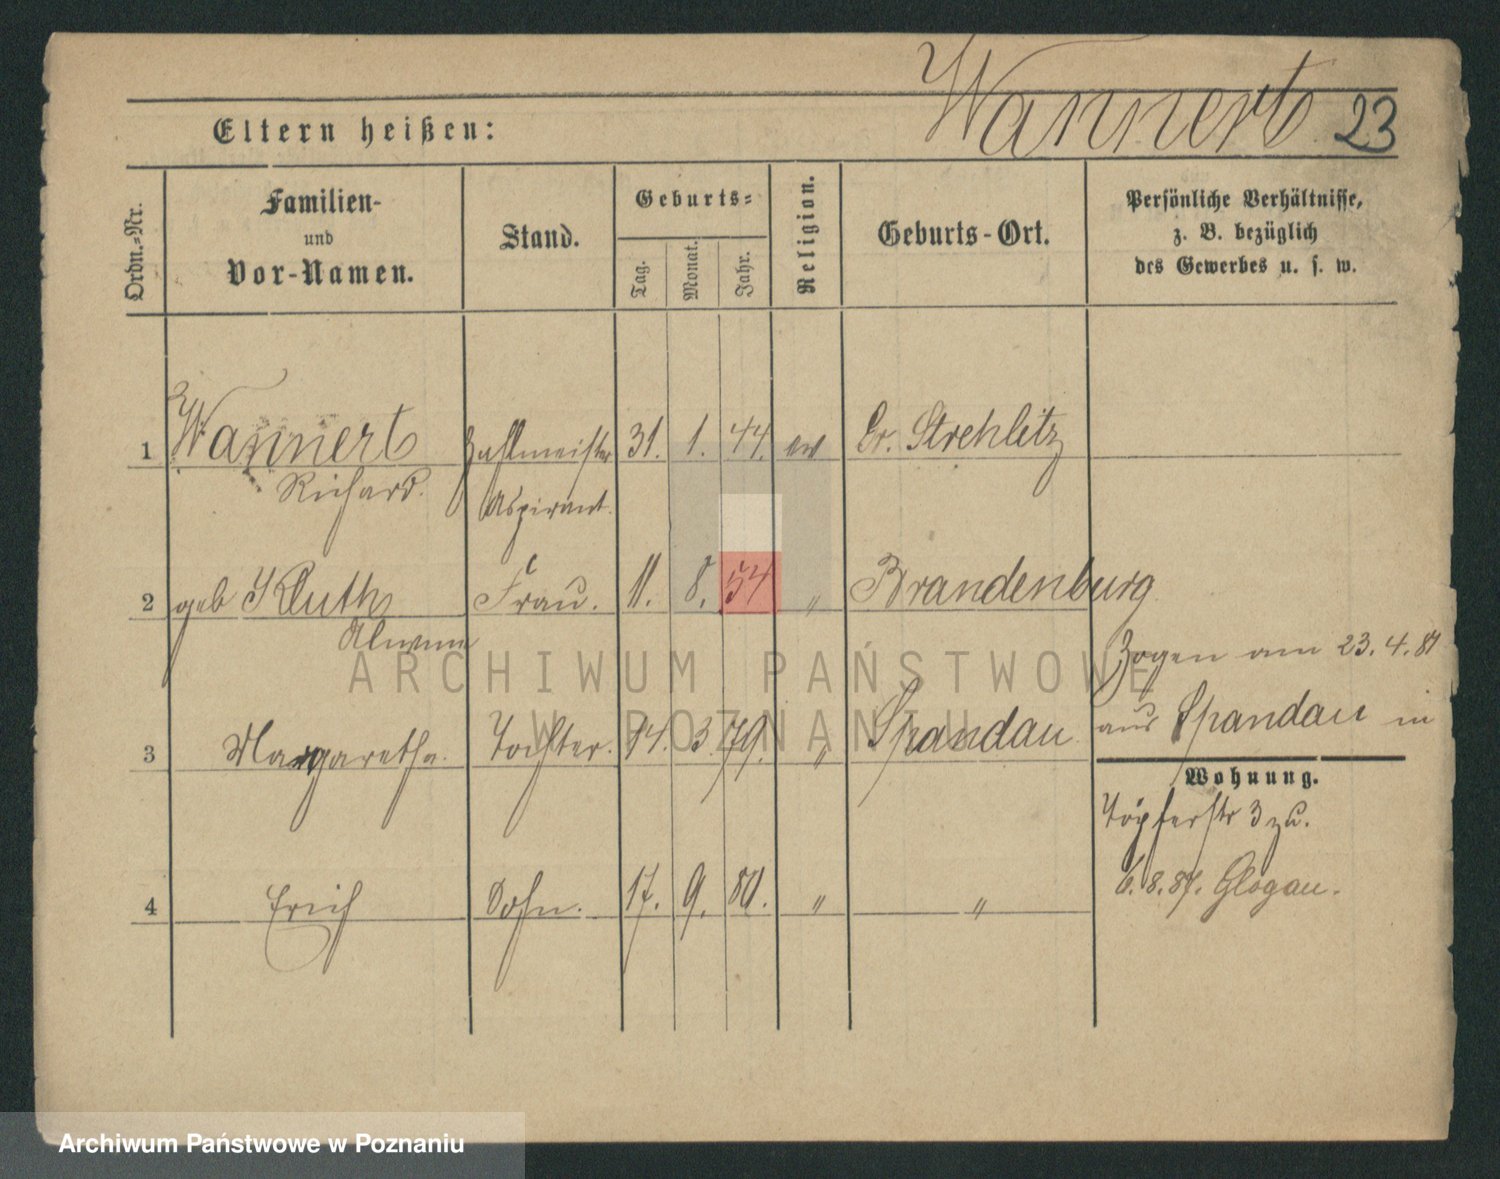 Wannert 23
Eltern heißen:
Ordn.-Nr.
Familien-
und
Vor-Namen.
Stand.
Geburts-
Tag.
Monat.
Jahr.
Religion.
Geburts-Ort.
Persönliche Verhältnisse,
z. B. bezüglich
des Gewerbes u. s. w.
1 Wannert Zahlmeister 31. 1. 44. ev Gr. Strehlitz
Richard. Aspirant.
2 geb Kluth Frau. 11. 8. 54 " Brandenburg
Alwine
Zogen am 23. 4. 81
aus Spandau in
3 Margaretha. Tochter. 14. 3. 79. " Spandau
Wohnung.
Töpferstr 3 zu.
6. 8. 87. Glogau.
4 Erich Sohn. 17. 9. 80. " "
ARCHIWUM PAŃSTWOWE
W POZNANIU
Archiwum Państwowe w Poznaniu